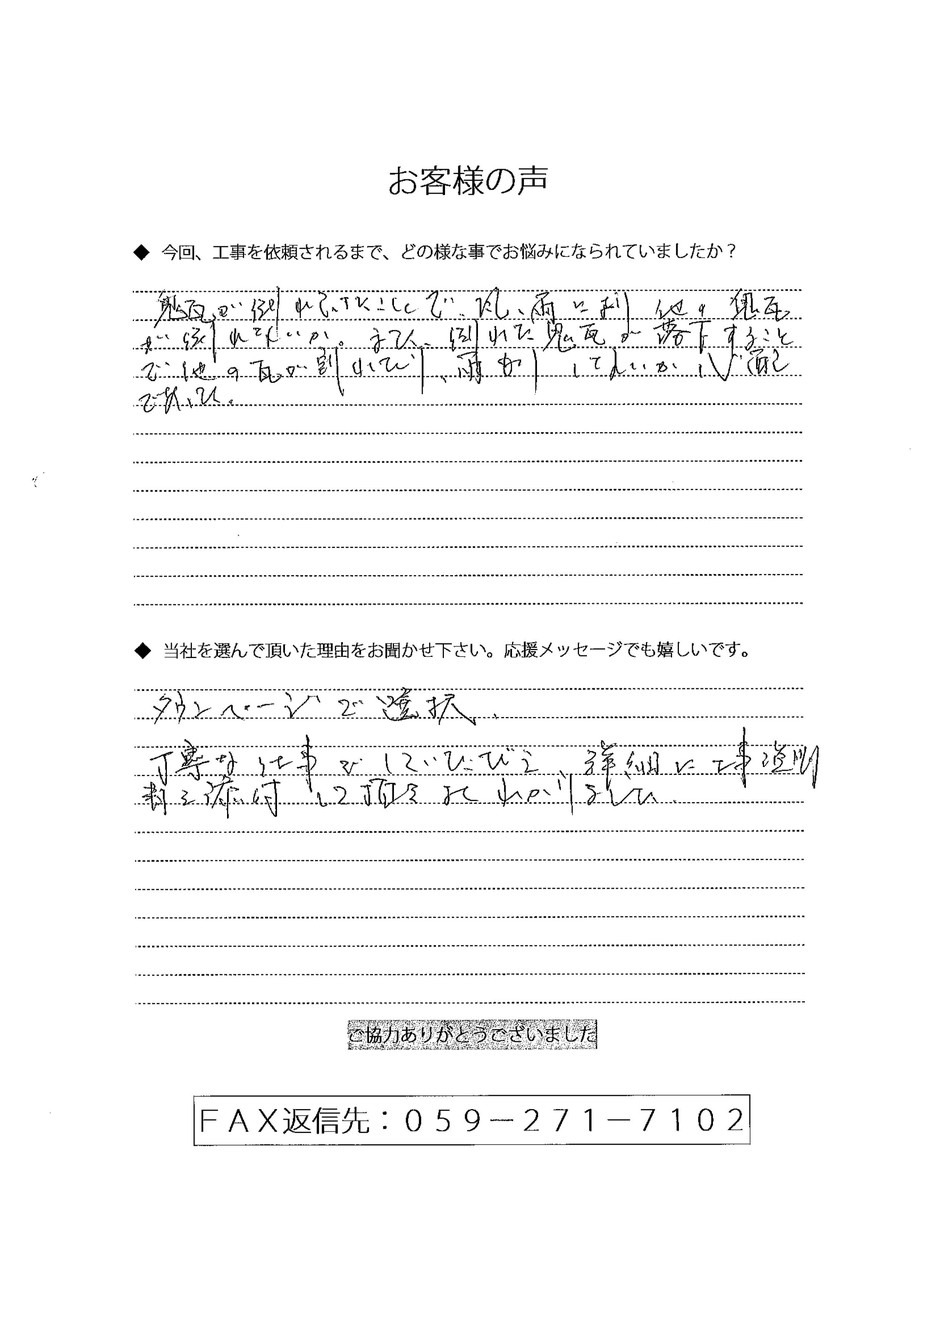 お客様の声
◆ 今回、工事を依頼されるまで、どの様な事でお悩みになられていましたか？
鬼瓦が倒れていたことで、風、雨により他の鬼瓦
が倒れてないか。また、倒れた鬼瓦が落下すること
で他の瓦が割れており、雨もりしてないか心配
であった。
◆ 当社を選んで頂いた理由をお聞かせ下さい。応援メッセージでも嬉しいです。
タウンページで選択。
丁寧な仕事をしていただき、詳細に工事説明
料を添付して頂きよくわかりました。
ご協力ありがとうございました
ＦＡＸ返信先：０５９－２７１－７１０２